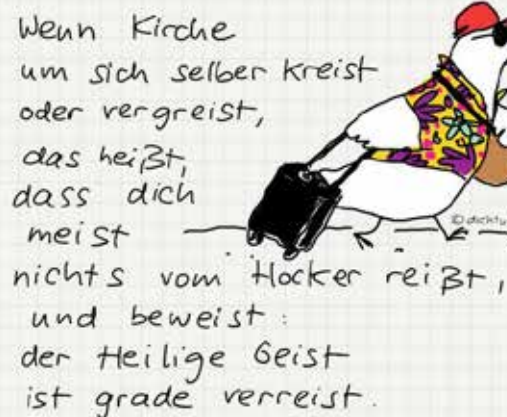 Wenn Kirche
um sich selber kreist
oder vergreist,
das heißt,
dass dich
meist
nichts vom Hocker reißt,
und beweist:
der Heilige Geist
ist grade verreist.